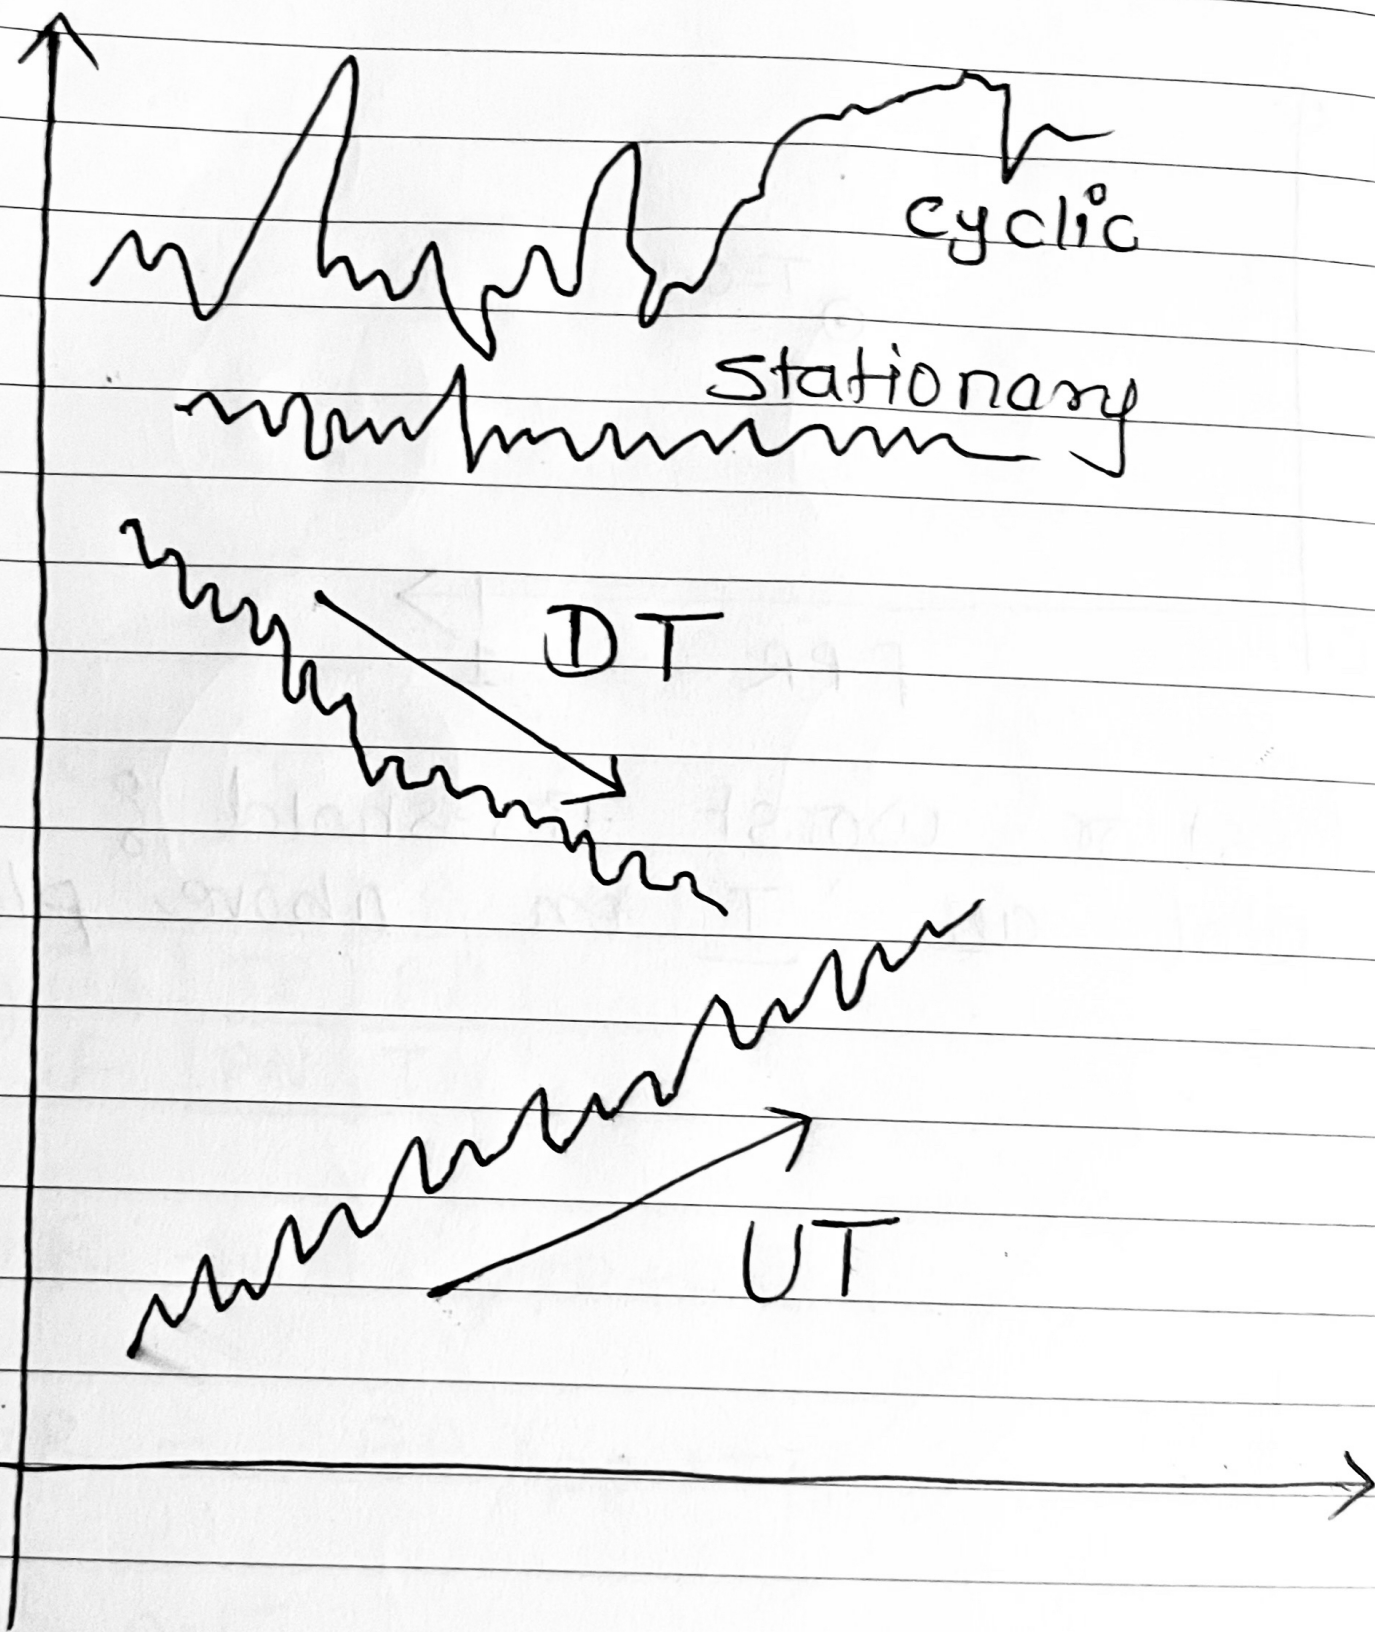 cyclic
stationary
DT
UT